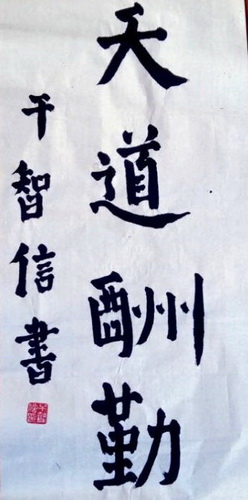 天道酬勤
于智信書